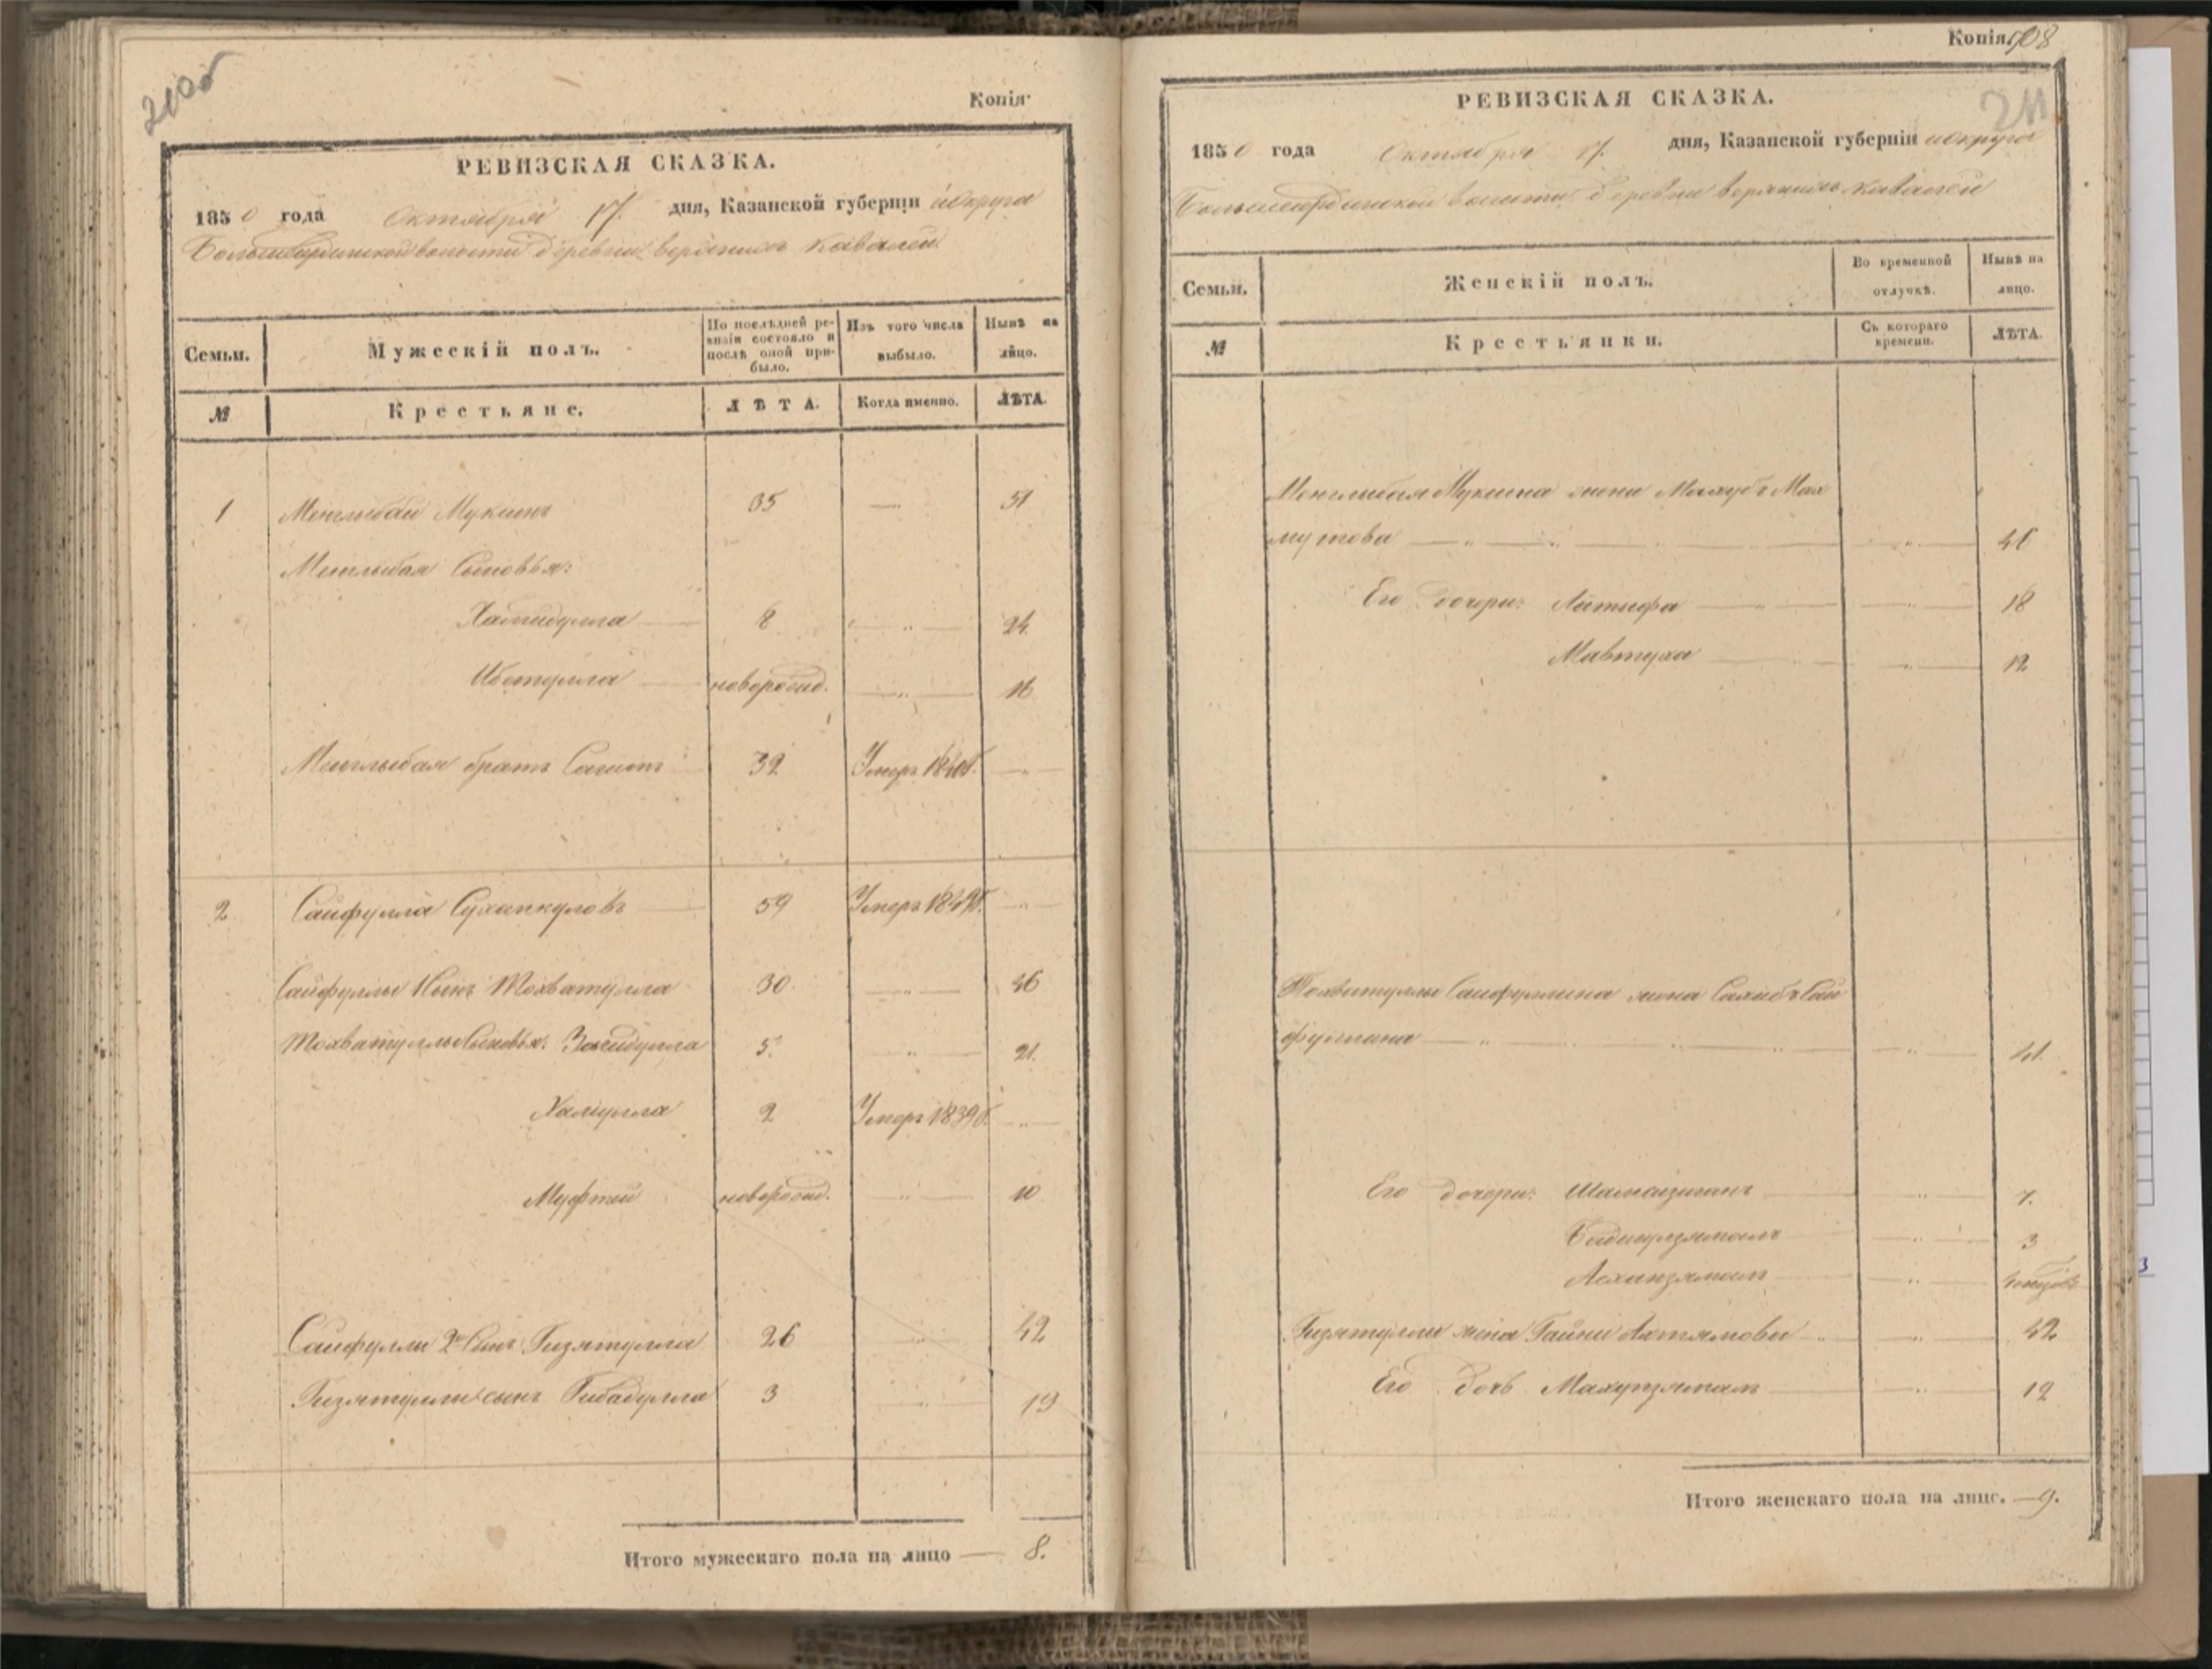 210об
Копія
РЕВИЗСКАЯ СКАЗКА.
1850 года Октября 17. дня, Казанской губерніи и округа
волости деревни верхнихъ Кавалей
Семьи.
Мужескій полъ.
По послѣдней ре-
визіи состояло и
послѣ оной при-
было.
Изъ того числа
выбыло.
Нынѣ на
лицо.
№
Крестьяне.
ЛѢТА.
Когда именно.
ЛѢТА.
1 Менглыбай Мукинъ 35 — 51
Менглыбая Сыновья:
Хамидулла — 8 — „ — 24.
новорожд. — „ — 16
Менглыбая братъ Сагитъ — 32 Умеръ — „ —
2 Сайфулла Суханкуловъ — 59 Умеръ — „ —
Сайфуллы 1 Сынъ Тохватулла 30 — „ — 46
Тохватуллы Сыновья: Загидулла 5. — „ — 21.
Халиулла 2 Умеръ 1839г. — „ —
Муфтей новорожд. — „ — 10
Сайфуллы 2й Сынъ Гизятулла 26 — „ — 42
Гизятуллы сынъ Гибадулла 3 — „ — 19
Итого мужескаго пола на лицо — 8.
Копія 508
211
РЕВИЗСКАЯ СКАЗКА.
1850 года Октября 17. дня, Казанской губерніи и округа
волости деревни верхнихъ Кавалей
Семьи.
Женскій полъ.
Во временной
отлучкѣ.
Нынѣ на
лицо.
№
Крестьянки.
Съ котораго
времени.
ЛѢТА.
Менглыбая Мукина жена Махубъ Мах
мутова — „ — „ — 46
Его дочери: Латифа — „ — „ — 18
Мавтуха — „ — 12
Тохватуллы Сайфуллина жена Сахибъ Сай
фуллина — „ — „ — 41.
Его дочери: — „ — 7.
Бадигулзямалъ — „ — 3
Асханзямалъ — „ —
Гизятуллы жена Гайни Ахтямова „ — „ — 42
Его дочь Махупзямалъ — „ — 12
Итого женскаго пола на лице. — 9.